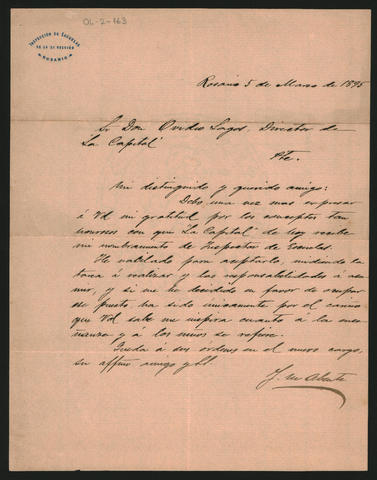 OL-2-163
INSPECCIÓN DE ESCUELAS
DE LA 3ª SECCIÓN
ROSARIO
Rosario 5 de Marzo de 1895
Sr Don Ovidio Lagos, Director de
"La Capital"
Pte.
Mi distinguido y querido amigo:
Debo, una vez mas expresar
á Vd mi gratitud por los conceptos tan
honrosos con que "La Capital" de hoy recibe
mi nombramiento de Inspector de Escuelas.
He vacilado para aceptarlo, midiendo la
tarea á realizar y las responsabilidades á asu
mir, y si me he decidido en favor de ocupar
ese puesto ha sido únicamente por el cariño
que Vd sabe me inspira cuanto á la ense
ñanza y á los niños se refiere.
Queda á sus órdenes en el nuevo cargo,
su affmo amigo